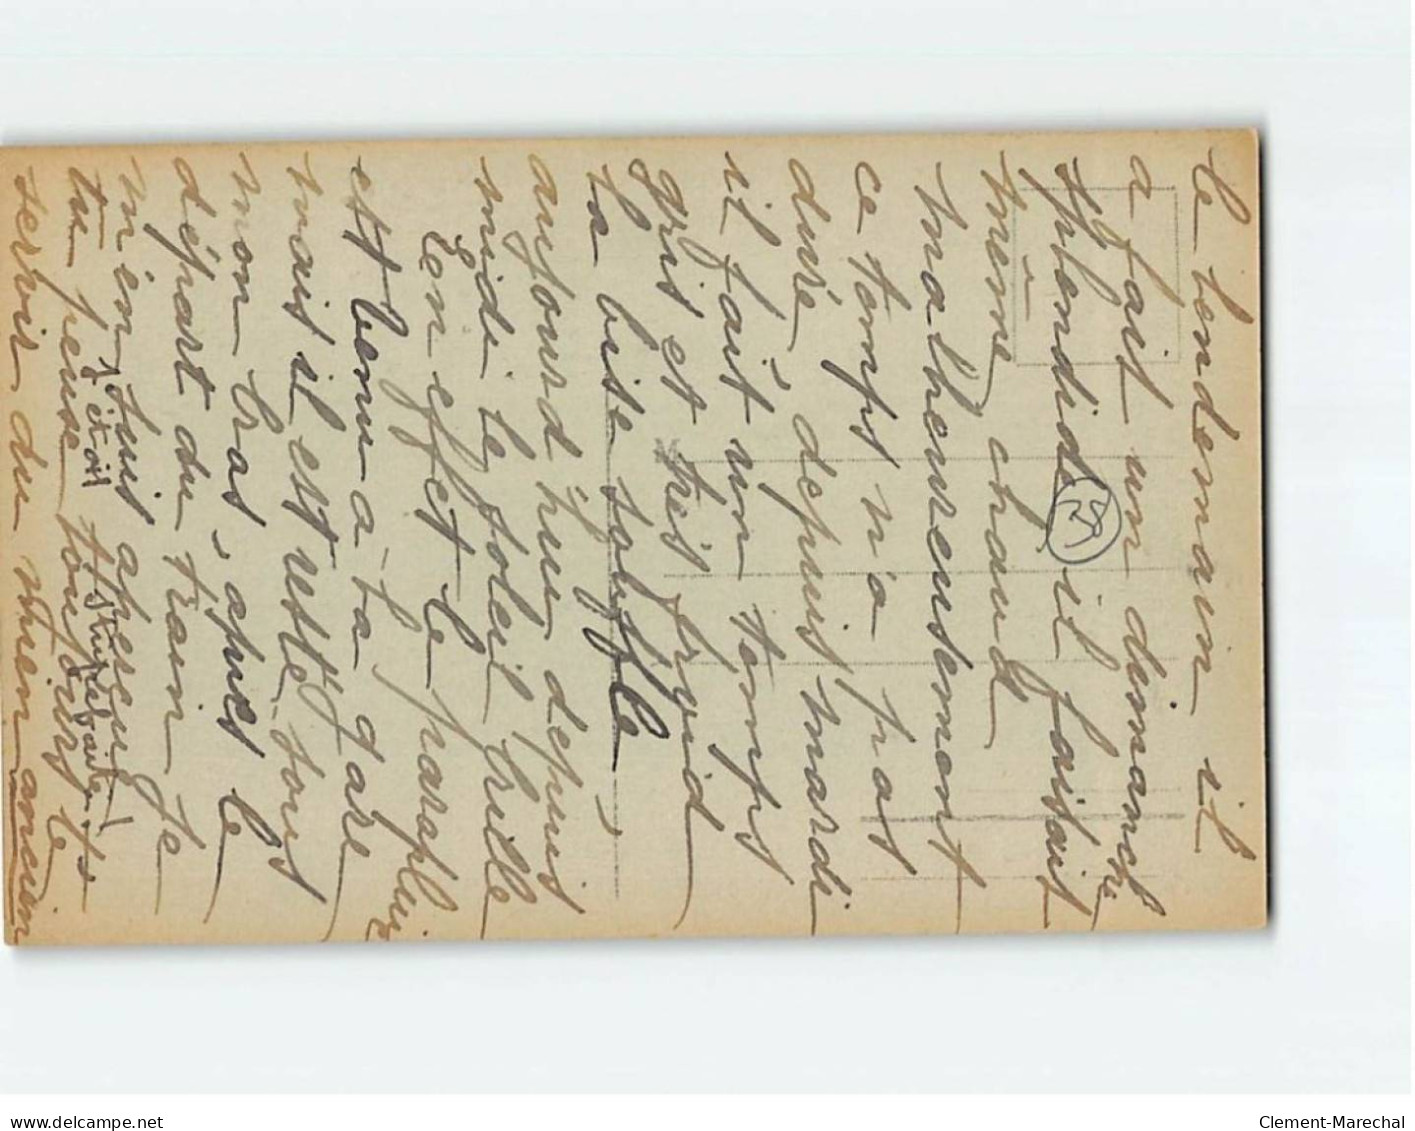 le lendemain il
a fait un dimanche
splendide il faisait très
même chaud
malheureusement
ce temps n'a pas
duré, depuis mardi
il fait un temps
gris et très froid
la bise souffle,
aujourd'hui depuis
midi le soleil brille
En effet le parapluie
est venu à la gare
mais il est resté sous
mon bras, après le
départ du train je
m'en suis aperçu
j'étais stupéfaite!
tu penses toujours te
servir du mien ancien
delcampe.net
Clement-Marechal